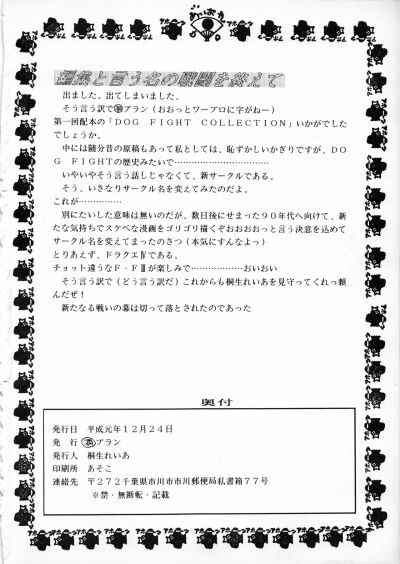 編集と言う名の戦闘を終えて
出ました。出てしまいました。
そう言う訳で㊙プラン(おおっとワープロに字がねー)
第一回配本の「DOG FIGHT COLLECTION」いかがでした
でしょうか。
中には随分昔の原稿もあって私としては、恥ずかしいかぎりですが、DO
G FIGHTの歴史みたいで……………………………
いやいやそう言う話しじゃなくて、新サークルである。
そう、いきなりサークル名を変えてみたのだよ。
これが……………
別にたいした意味は無いのだが、数日後にせまった90年代へ向けて、新
たな気持ちでスケベな漫画をゴリゴリ描くぞおおおおっと言う決意を込めて
サークル名を変えてまったのさつ(本気にすんなよっ)
とりあえず、ドラクエⅣである。
チョット違うなF・FⅢが楽しみで………………おいおい
そう言う訳で(どう言う訳だ)これからも桐生れいあを見守ってくれっ頼
んだぜ!
新たなる戦いの墓は切って落とされたのであった
奥付
発行日 平成元年12月24日
発 行 プラン
発行人 桐生れいあ
印刷所 あそこ
連絡先 〒272千葉県市川市市川郵便局私書箱77号
※禁・無断転・記載